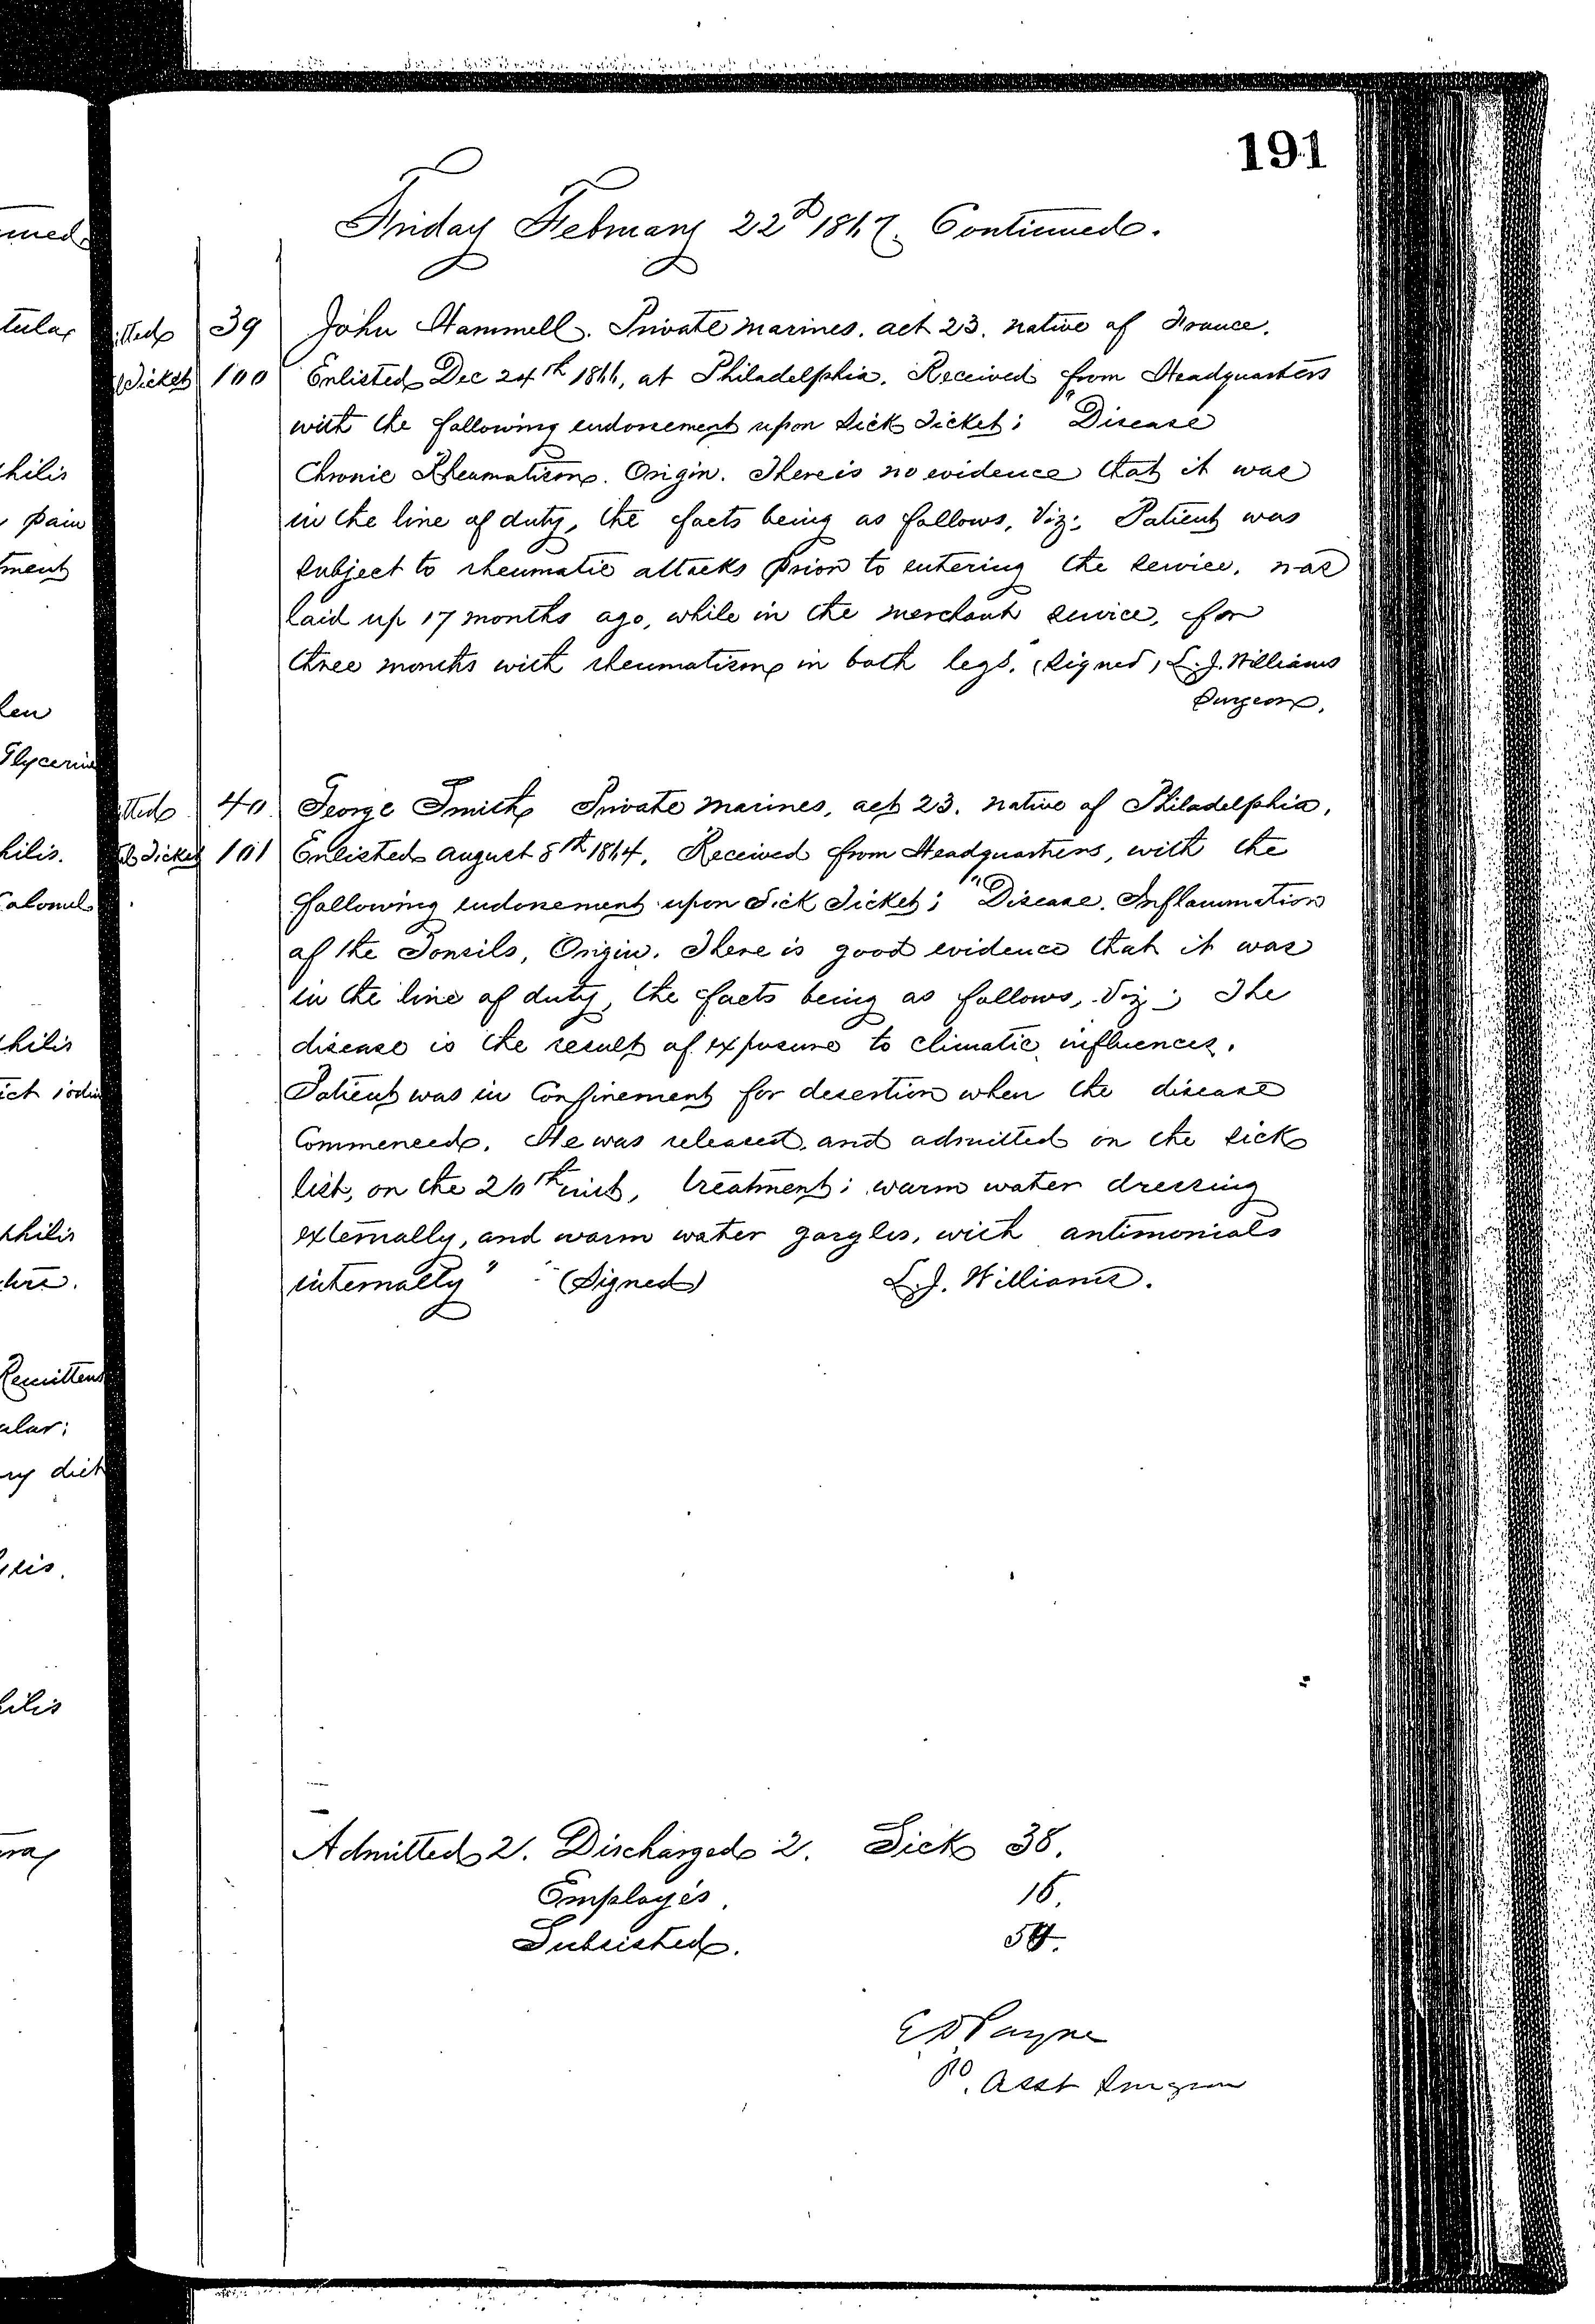 191
Friday February 22d 1867. Continued.
39 John Hammell. Private Marines. aet 23. native of France.
Ticket 100 Enlisted Dec 24th 1866, at Philadelphia. Received from Headquarters
with the following endorsement upon Sick Ticket; "Disease
Chronic Rheumatism. Origin. There is no evidence that it was
in the line of duty, the facts being as follows, Viz; Patient was
subject to rheumatic attacks prior to entering the service, was
laid up 17 months ago, while in the merchant service, for
three months with rheumatism in both legs." (Signed) L. J. Williams
Surgeon.
40 George Smith Private Marines, aet 23. native of Philadelphia,
Ticket 101 Enlisted August 8th 1864. Received from Headquarters, with the
following endorsement upon Sick Ticket; "Disease. Inflammation
of the Tonsils, Origin. There is good evidence that it was
in the line of duty, the facts being as follows, Viz; The
disease is the result of exposure to climatic influences.
Patient was in Confinement for desertion when the disease
Commenced. He was released and admitted on the sick
list, on the 20th inst, treatment: warm water dressing
externally, and warm water gargles, with antimonials
internally" (Signed) L. J. Williams.
Admitted 2. Discharged 2. Sick 38.
Employés. 16.
Subsisted. 54.
E D Payne
P. Asst Surgeon